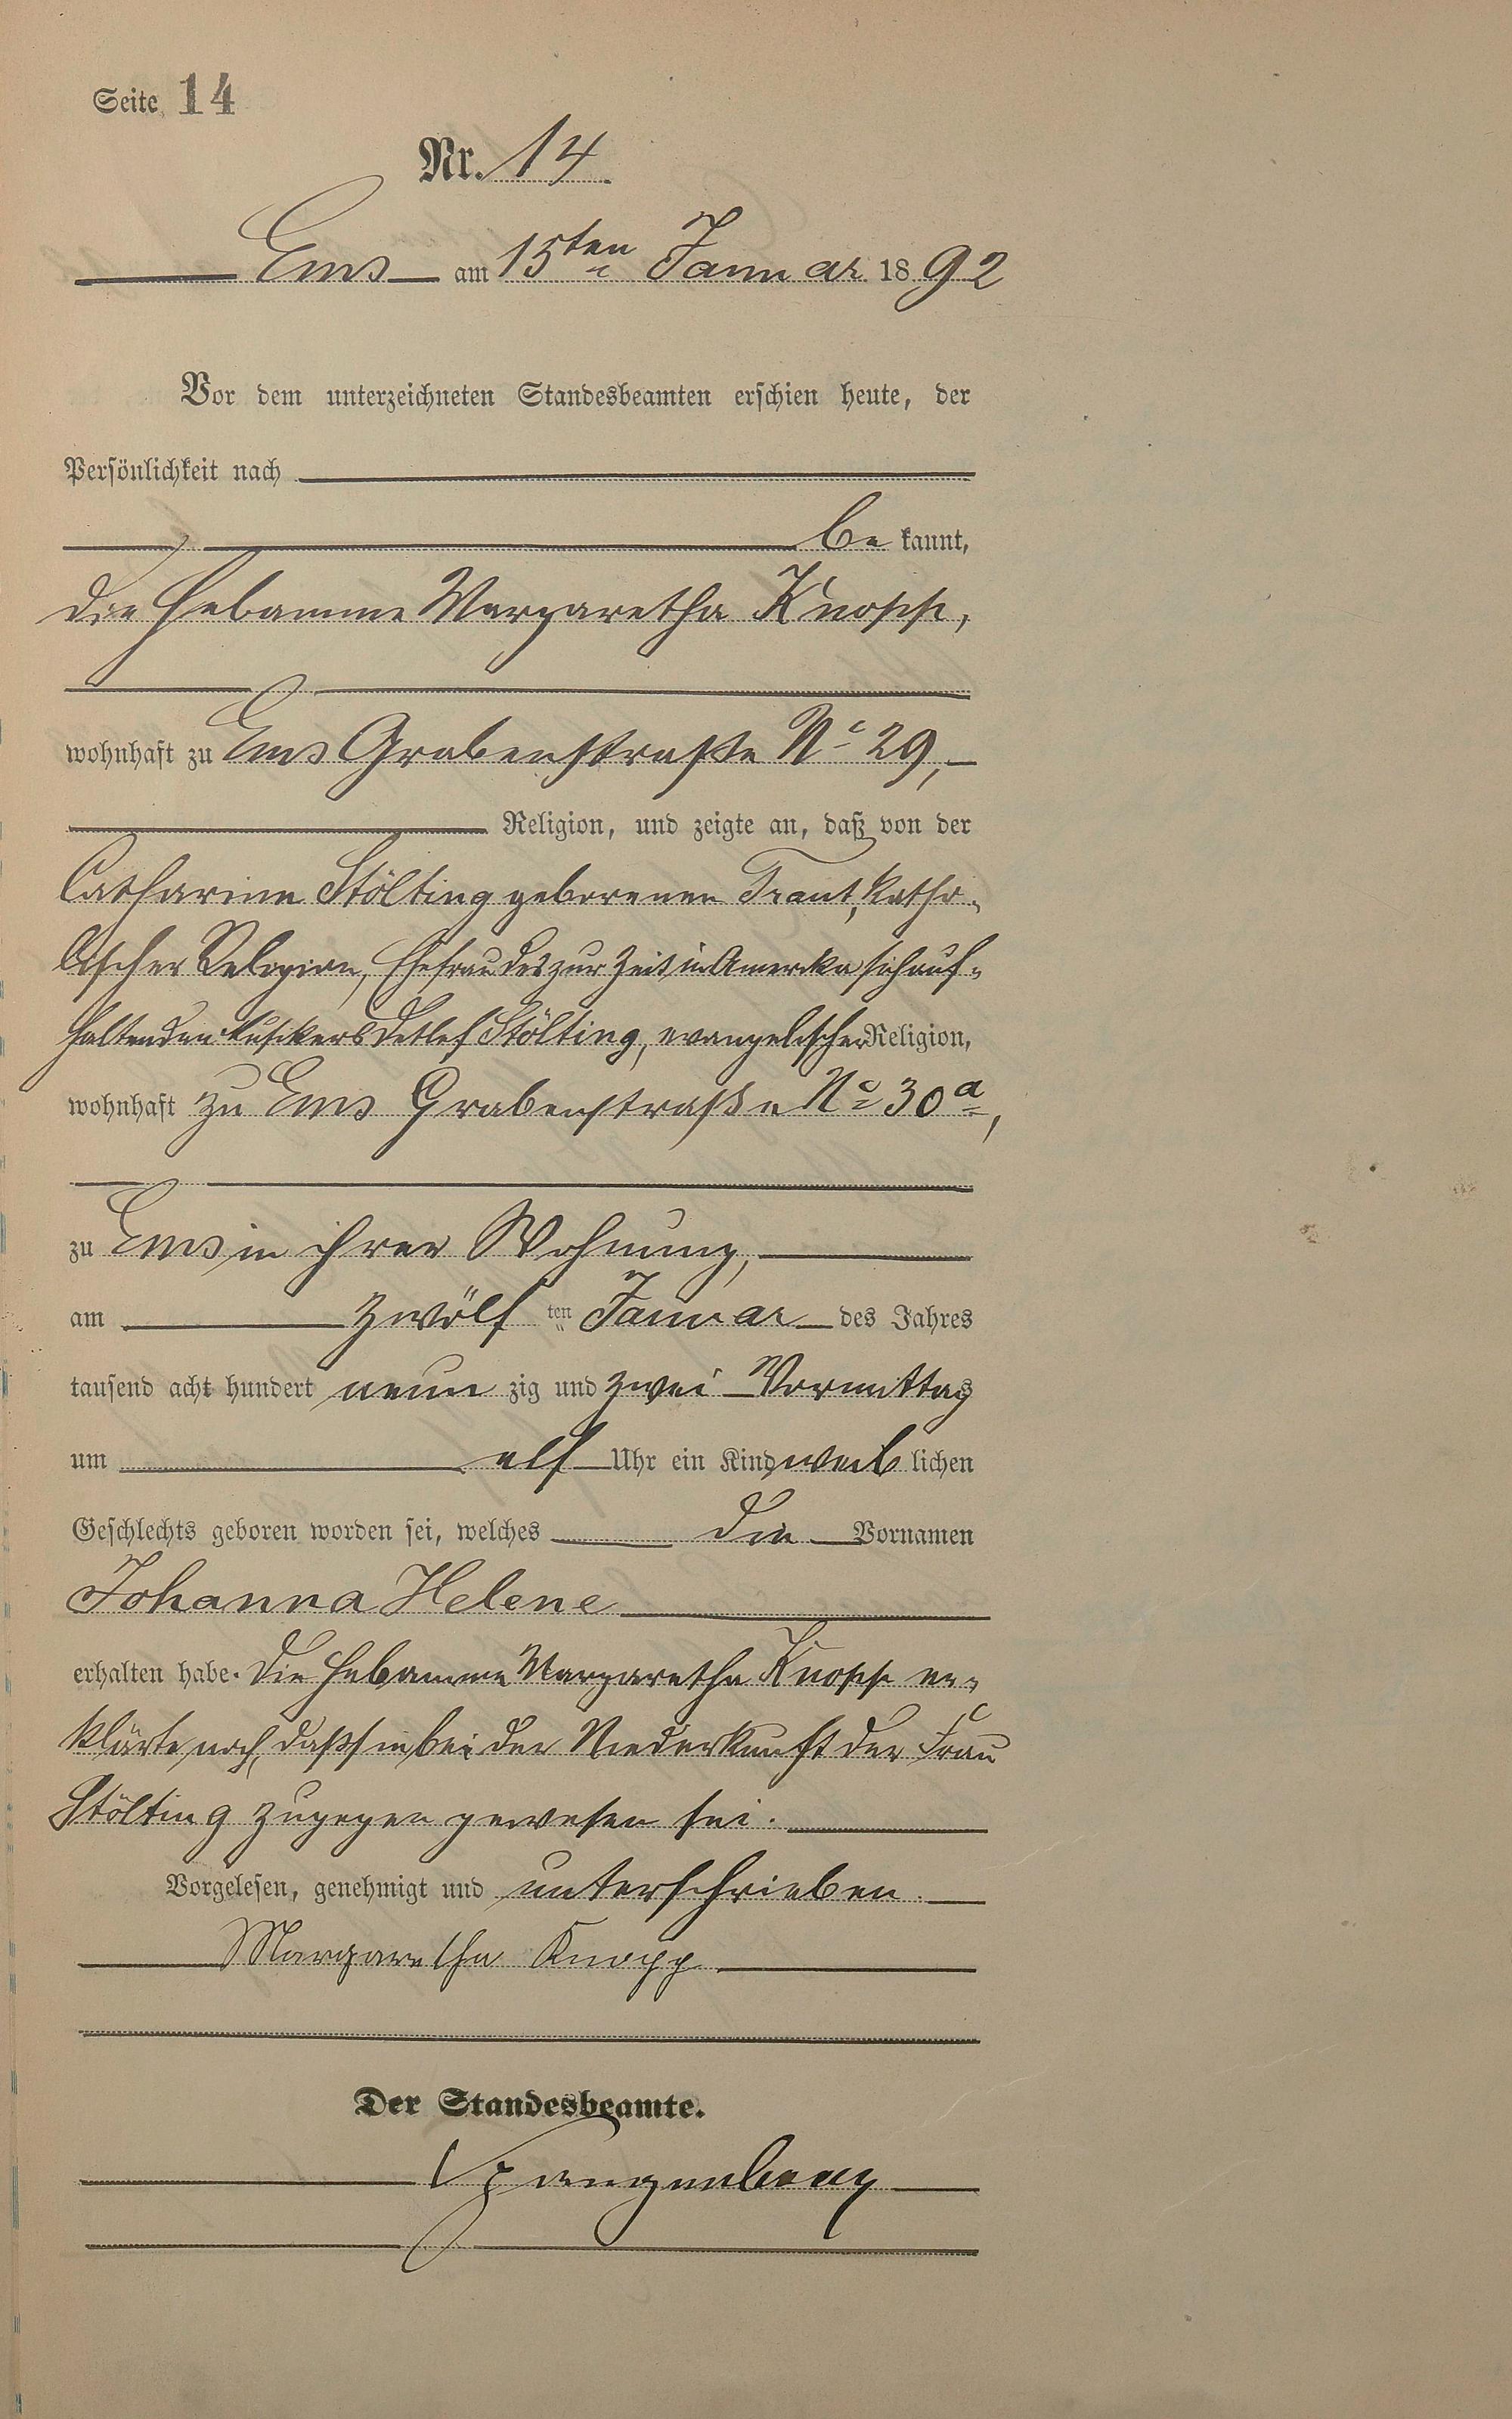 Seite 14
Nr. 14
Ems am 15ten Januar 1892
Vor dem unterzeichneten Standesbeamten erschien heute, der
Persönlichkeit nach
be kannt,
die Hebamme Margaretha Knopp,
wohnhaft zu Ems Grabenstraße No 29,
Religion, und zeigte an, daß von der
Catharina Stölting geborenen Traut, katho-
lischer Religion, Ehefrau des zur Zeit in Amerika sich auf-
haltenden Musikers Detlef Stölting, evangelischer Religion,
wohnhaft zu Ems Grabenstraße No 30a,
zu Ems in ihrer Wohnung,
am zwölf ten Januar des Jahres
tausend acht hundert neun zig und zwei Vormittags
um elf Uhr ein Kind weib lichen
Geschlechts geboren worden sei, welches die Vornamen
Johanna Helene
erhalten habe. Die Hebamme Margaretha Knopp er-
klärte noch, daß sie bei der Niederkunft der Frau
Stölting zugegen gewesen sei.
Vorgelesen, genehmigt und unterschrieben.
Margaretha Knopp
Der Standesbeamte.
Spangenberg